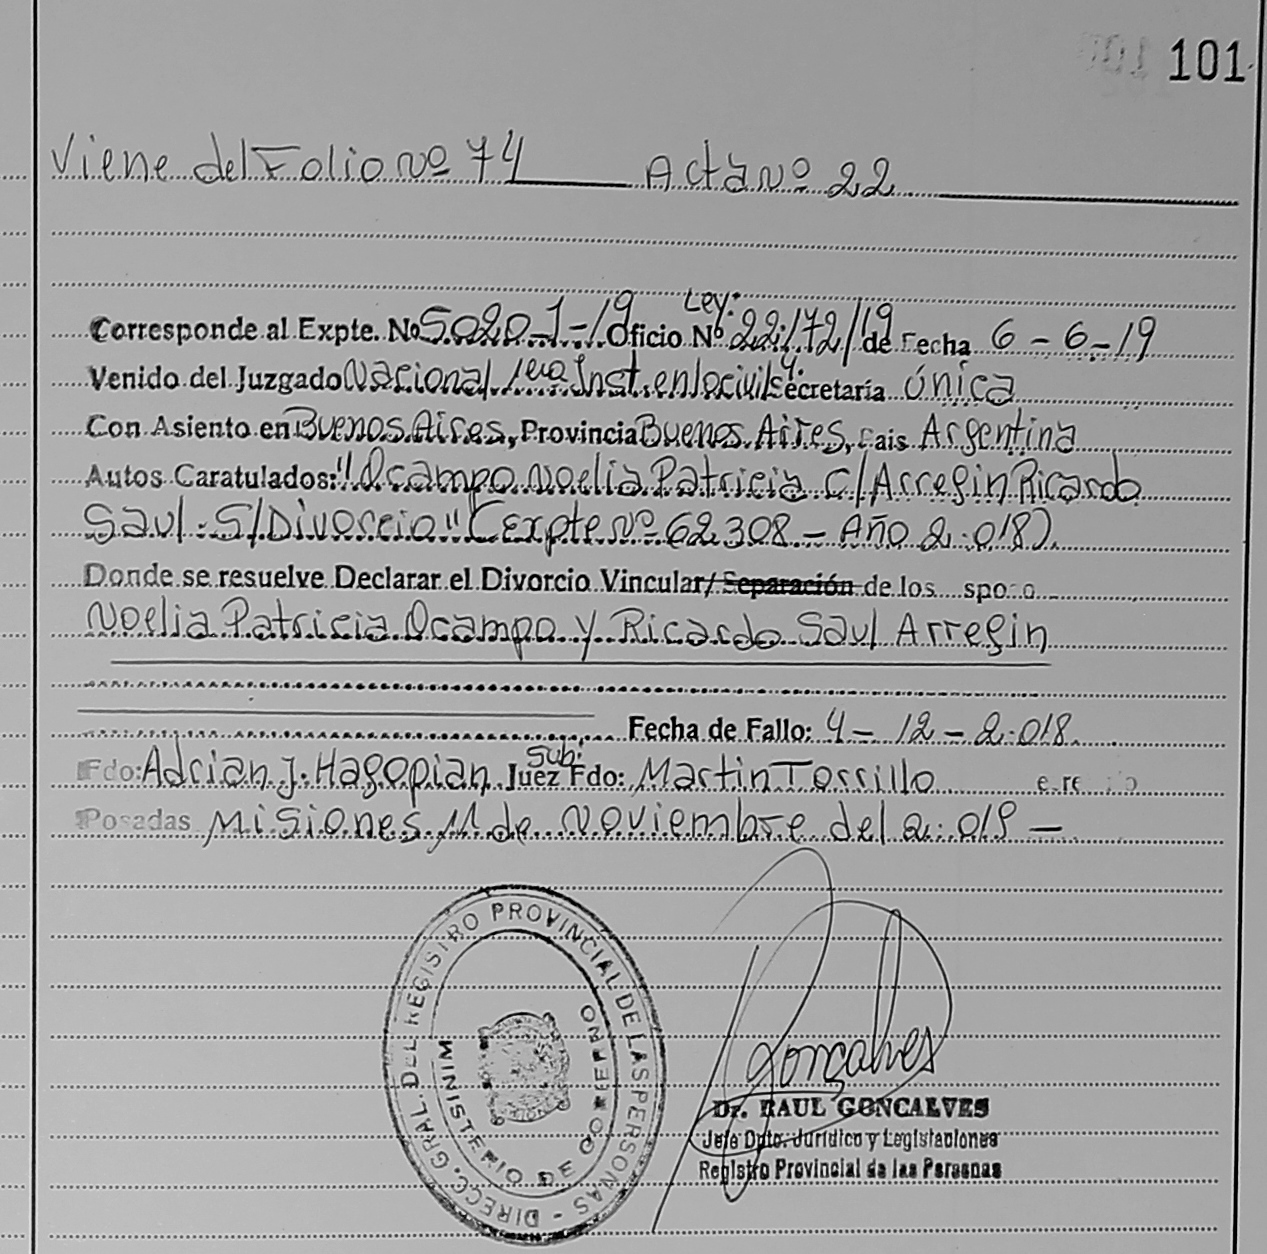 101
Viene del Folio Nº 74 Acta Nº 22
Ley:
Corresponde al Expte. No 5020-1-19 Oficio Nº 22.172/19 de Fecha 6-6-19
Venido del Juzgado Nacional 1era Inst. en lo civil y. Secretaría Única
Con Asiento en Buenos Aires, Provincia Buenos Aires, Pais Argentina
Autos Caratulados: "Ocampo Noelia Patricia C/ Arregin Ricardo
Saul S/ Divorcio" (Expte Nº 62.308 - Año 2.018)
Donde se resuelve Declarar el Divorcio Vincular/ Separación de los sposo
Noelia Patricia Ocampo y Ricardo Saul Arregin
Fecha de Fallo: 4-12-2.018
Fdo: Adrian J. Hagopian Juez Sub: Fdo: Martin Torrillo
Posadas Misiones 11 de Noviembre del 2.019 —
DIRECC. GRAL. DEL REGISTRO PROVINCIAL DE LAS PERSONAS -
MINISTERIO DE GOBIERNO
Goncalves
Dr. RAUL GONCALVES
Jefe Dpto. Jurídico y Legislaciones
Registro Provincial de las Personas